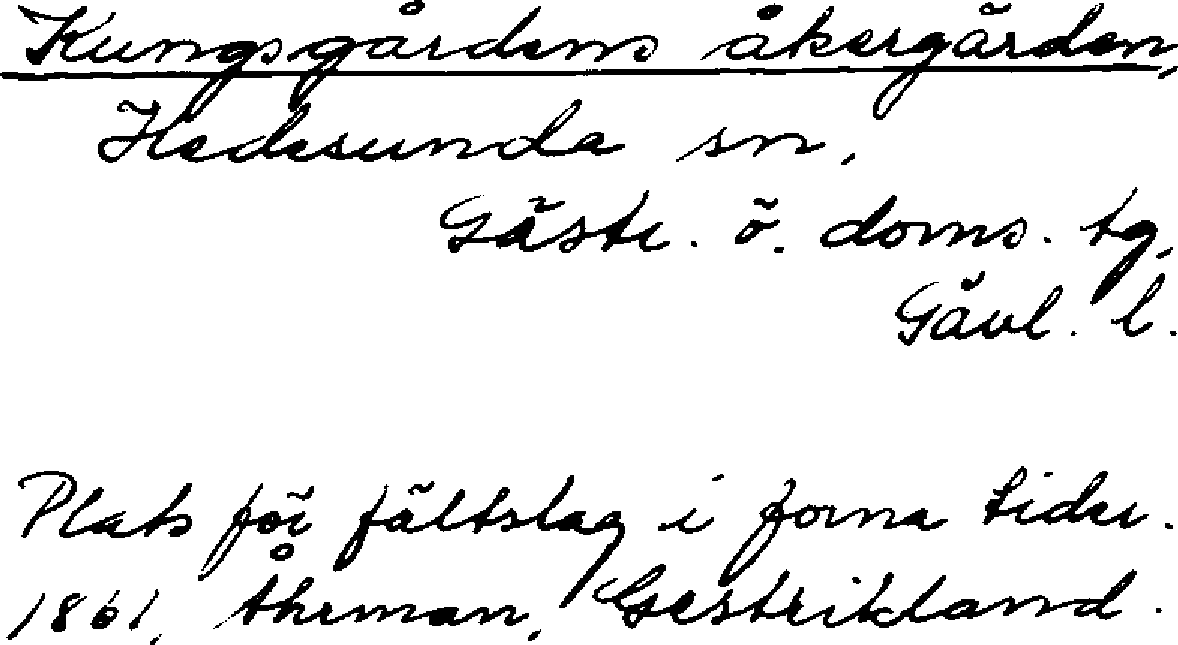 Kungsgårdens åkergärden,
Hedesunda sn,
Gästr. ö. doms. tg,
Gävl. l.
Plats för fältslag i forna tider.
1861, Åhrman, Gestrikland.